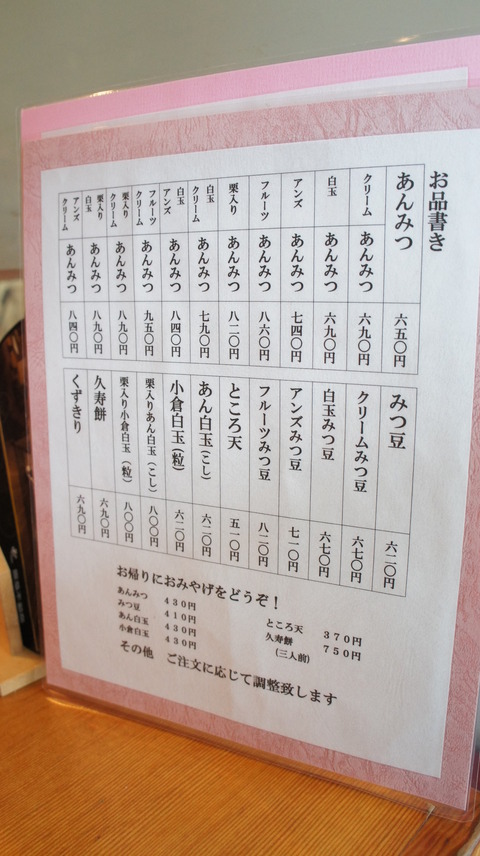 お品書き
あんみつ 六五〇円
クリーム あんみつ 六九〇円
白玉 あんみつ 六九〇円
アンズ あんみつ 七四〇円
フルーツ あんみつ 八六〇円
栗入り あんみつ 八二〇円
白玉 クリーム あんみつ 七九〇円
白玉 アンズ あんみつ 八四〇円
フルーツ クリーム あんみつ 九五〇円
栗入り クリーム あんみつ 八九〇円
栗入り 白玉 あんみつ 八九〇円
アンズ クリーム あんみつ 八四〇円
みつ豆 六二〇円
クリームみつ豆 六七〇円
白玉みつ豆 六七〇円
アンズみつ豆 七一〇円
フルーツみつ豆 八二〇円
ところ天 五一〇円
あん白玉(こし) 六二〇円
小倉白玉(粒) 六二〇円
栗入りあん白玉(こし) 八〇〇円
栗入り小倉白玉(粒) 八〇〇円
久寿餅 六九〇円
くずきり 六九〇円
お帰りにおみやげをどうぞ!
あんみつ 430円
みつ豆 410円
あん白玉 430円
小倉白玉 430円
ところ天 370円
久寿餅 750円
(三人前)
その他 ご注文に応じて調整致します